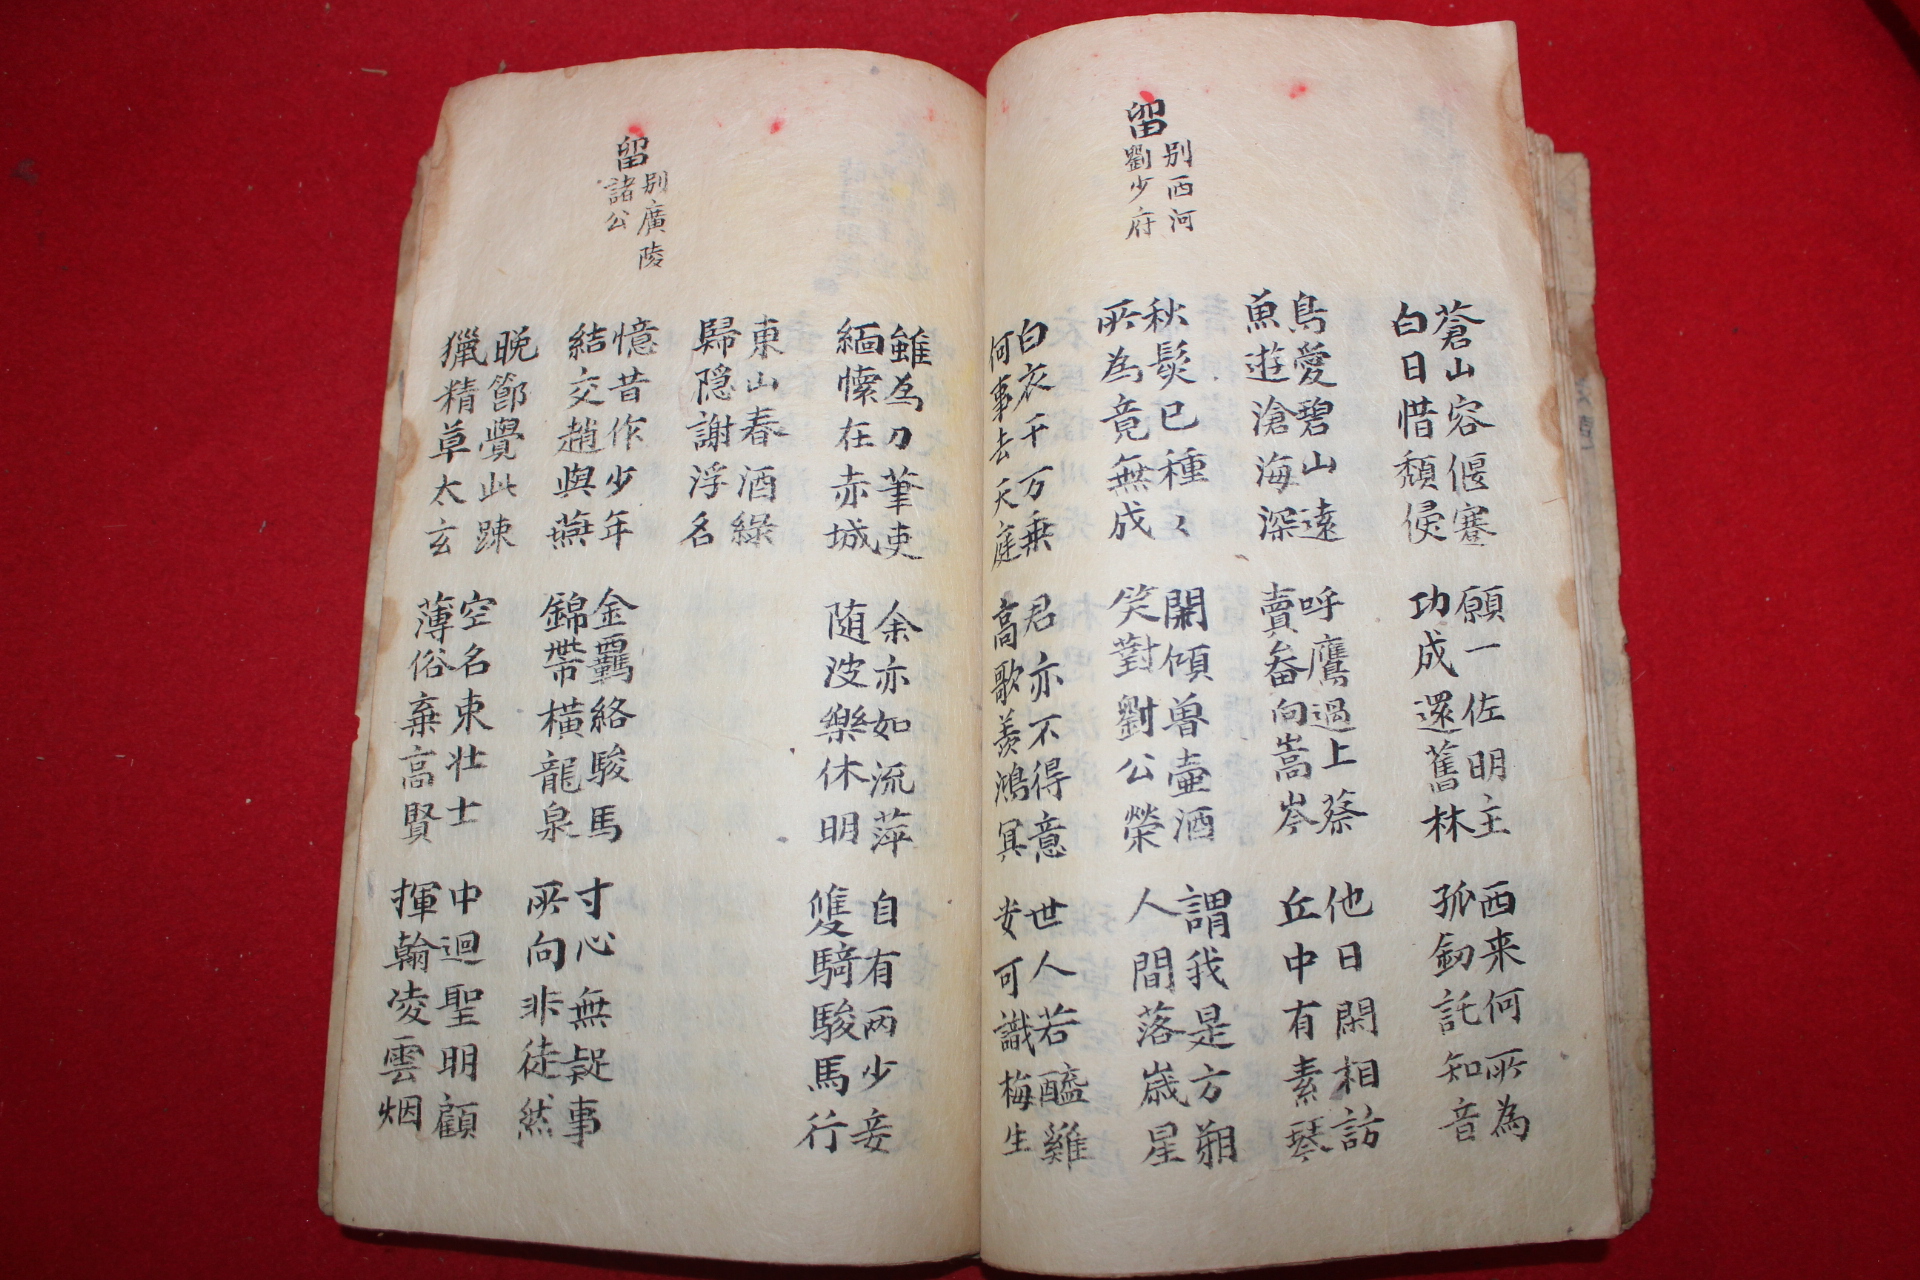 蒼山容偃蹇
白日惜頹侵
願一佐明主
功成還舊林
西来何所為
孤釰託知音
鳥愛碧山遠
魚遊滄海深
呼鷹過上蔡
賣畚向嵩岑
他日閑相訪
丘中有素琴
留別西河劉少府
秋髮已種々
所為竟無成
閑傾魯壺酒
笑對劉公榮
謂我是方朔
人間落歲星
白衣千万乗
何事去天庭
君亦不得意
高歌羨鴻冥
世人若醯雞
安可識梅生
雖為刀筆吏
緬懷在赤城
余亦如流萍
随波樂休明
自有两少妾
雙騎駿馬行
東山春酒綠
歸隠謝浮名
留別廣陵諸公
憶昔作少年
結交趙與燕
金羈絡駿馬
錦帶橫龍泉
寸心無疑事
所向非徒然
晚節覺此踈
獵精草太玄
空名束壯士
薄俗棄高賢
中迴聖明顧
揮翰凌雲烟